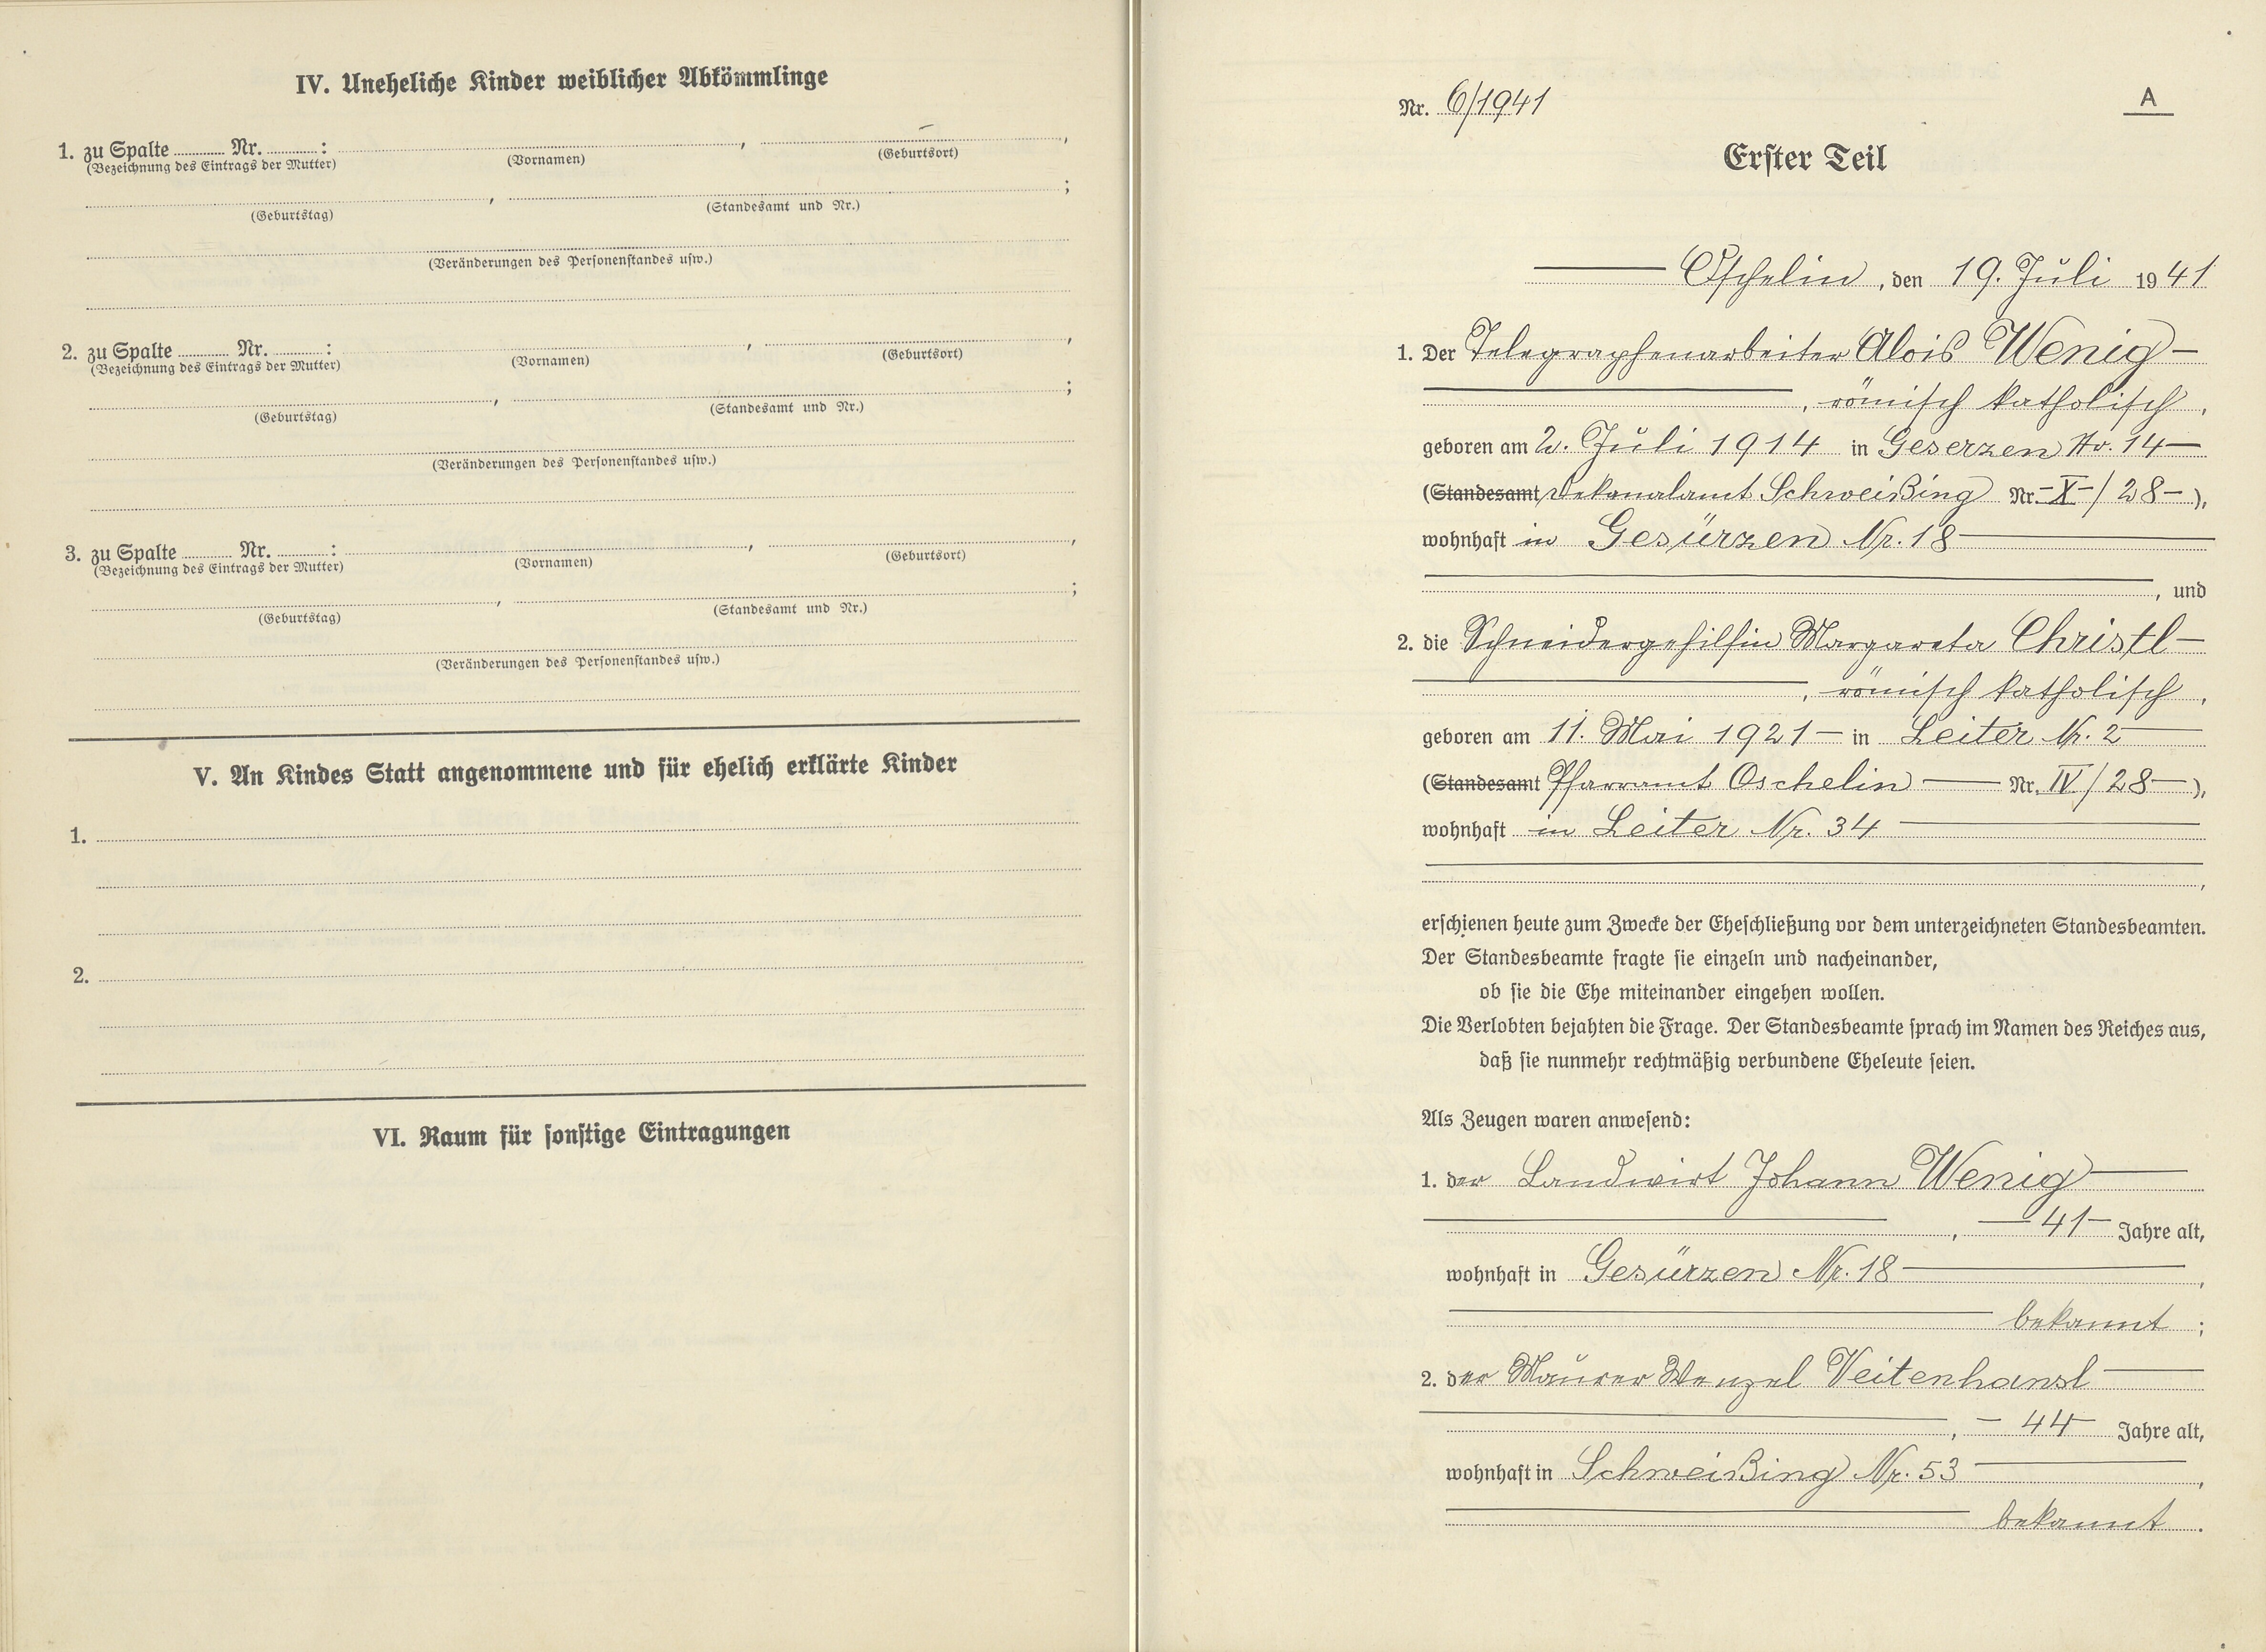 IV. Uneheliche Kinder weiblicher Abkömmlinge
1. zu Spalte ........ Nr. ........ : ........ , ........ ,
(Bezeichnung des Eintrags der Mutter) (Vornamen) (Geburtsort)
........ , ........ ;
(Geburtstag) (Standesamt und Nr.)
(Veränderungen des Personenstandes usw.)
2. zu Spalte ........ Nr. ........ : ........ , ........ ,
(Bezeichnung des Eintrags der Mutter) (Vornamen) (Geburtsort)
........ , ........ ;
(Geburtstag) (Standesamt und Nr.)
(Veränderungen des Personenstandes usw.)
3. zu Spalte ........ Nr. ........ : ........ , ........ ,
(Bezeichnung des Eintrags der Mutter) (Vornamen) (Geburtsort)
........ , ........ ;
(Geburtstag) (Standesamt und Nr.)
(Veränderungen des Personenstandes usw.)
V. An Kindes Statt angenommene und für ehelich erklärte Kinder
1.
2.
VI. Raum für sonstige Eintragungen
Nr. 6/1941 A
Erster Teil
Oschelin, den 19. Juli 1941
1. Der Telegraphenarbeiter Alois Wenig —
, römisch katholisch,
geboren am 2. Juli 1914 in Geserzen No. 14 —
(Standesamt Dekanalamt Schweißing Nr. – X – / 28 – ),
wohnhaft in Gesürzen Nr. 18 —
, und
2. die Schneidergehilfin Margareta Christl —
, römisch katholisch,
geboren am 11. Mai 1921 — in Leiter Nr. 2 —
(Standesamt Pfarramt Oschelin — Nr. IV / 28 — ),
wohnhaft in Leiter Nr. 34 —
,
erschienen heute zum Zwecke der Eheschließung vor dem unterzeichneten Standesbeamten.
Der Standesbeamte fragte sie einzeln und nacheinander,
ob sie die Ehe miteinander eingehen wollen.
Die Verlobten bejahten die Frage. Der Standesbeamte sprach im Namen des Reiches aus,
daß sie nunmehr rechtmäßig verbundene Eheleute seien.
Als Zeugen waren anwesend:
1. der Landwirt Johann Wenig —
, — 41 — Jahre alt,
wohnhaft in Gesürzen Nr. 18 — ,
bekannt ;
2. der Maurer Wenzel Veitenhansl —
, — 44 — Jahre alt,
wohnhaft in Schweißing Nr. 53 — ,
bekannt .